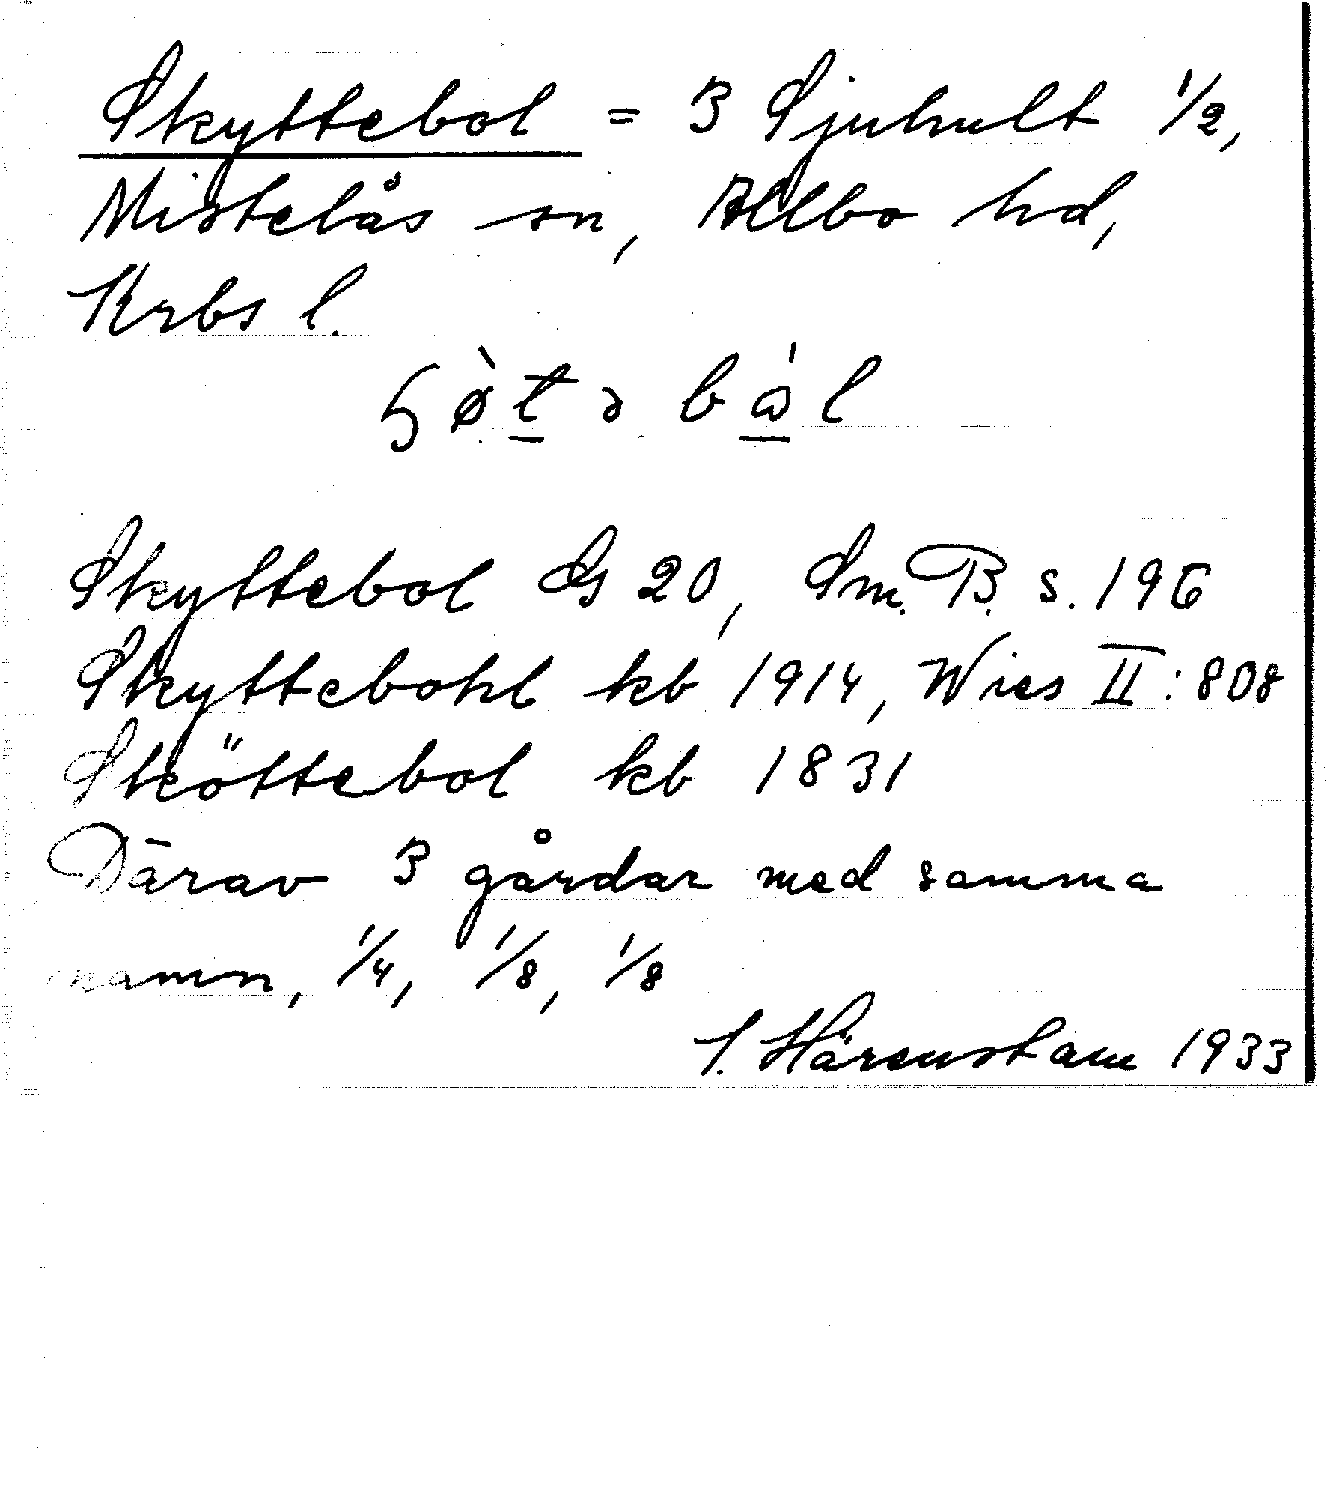 Skyttebol = 3 Sjuhult 1/2,
Mistelås sn, Allbo hd,
Krbs l.
Skyttebol GS 20, Sm. B. s. 196
Skyttebohl kb 1914, Wies II: 808
Sköttebol kb 1831
Därav 3 gårdar med samma
namn, 1/4, 1/8, 1/8
S. Härenstam 1933